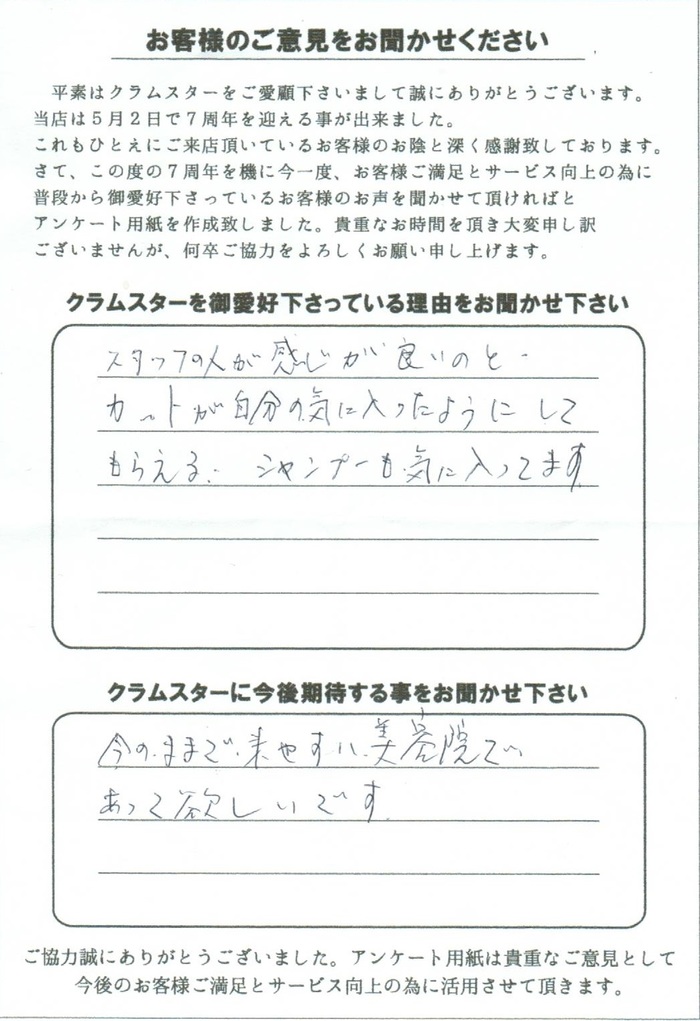 お客様のご意見をお聞かせください
平素はクラムスターをご愛顧下さいまして誠にありがとうございます。
当店は５月２日で７周年を迎える事が出来ました。
これもひとえにご来店頂いているお客様のお陰と深く感謝致しております。
さて、この度の７周年を機に今一度、お客様ご満足とサービス向上の為に
普段から御愛好下さっているお客様のお声を聞かせて頂ければと
アンケート用紙を作成致しました。貴重なお時間を頂き大変申し訳
ございませんが、何卒ご協力をよろしくお願い申し上げます。
クラムスターを御愛好下さっている理由をお聞かせ下さい
スタッフの人が感じが良いのと、
カットが自分の気に入ったようにして
もらえる。シャンプーも気に入ってます
クラムスターに今後期待する事をお聞かせ下さい
今のままで来やすい美容院で
あって欲しいです。
ご協力誠にありがとうございました。アンケート用紙は貴重なご意見として
今後のお客様ご満足とサービス向上の為に活用させて頂きます。